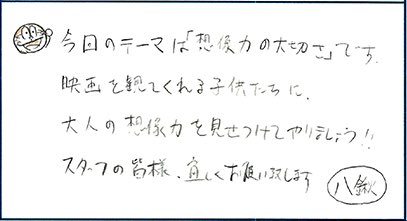 今回のテーマは「想像力の大切さ」です.
映画を観てくれる子供たちに、
大人の想像力を見せつけてやりましょう!!
スタッフの皆様、宜しくお願い致します
八鍬